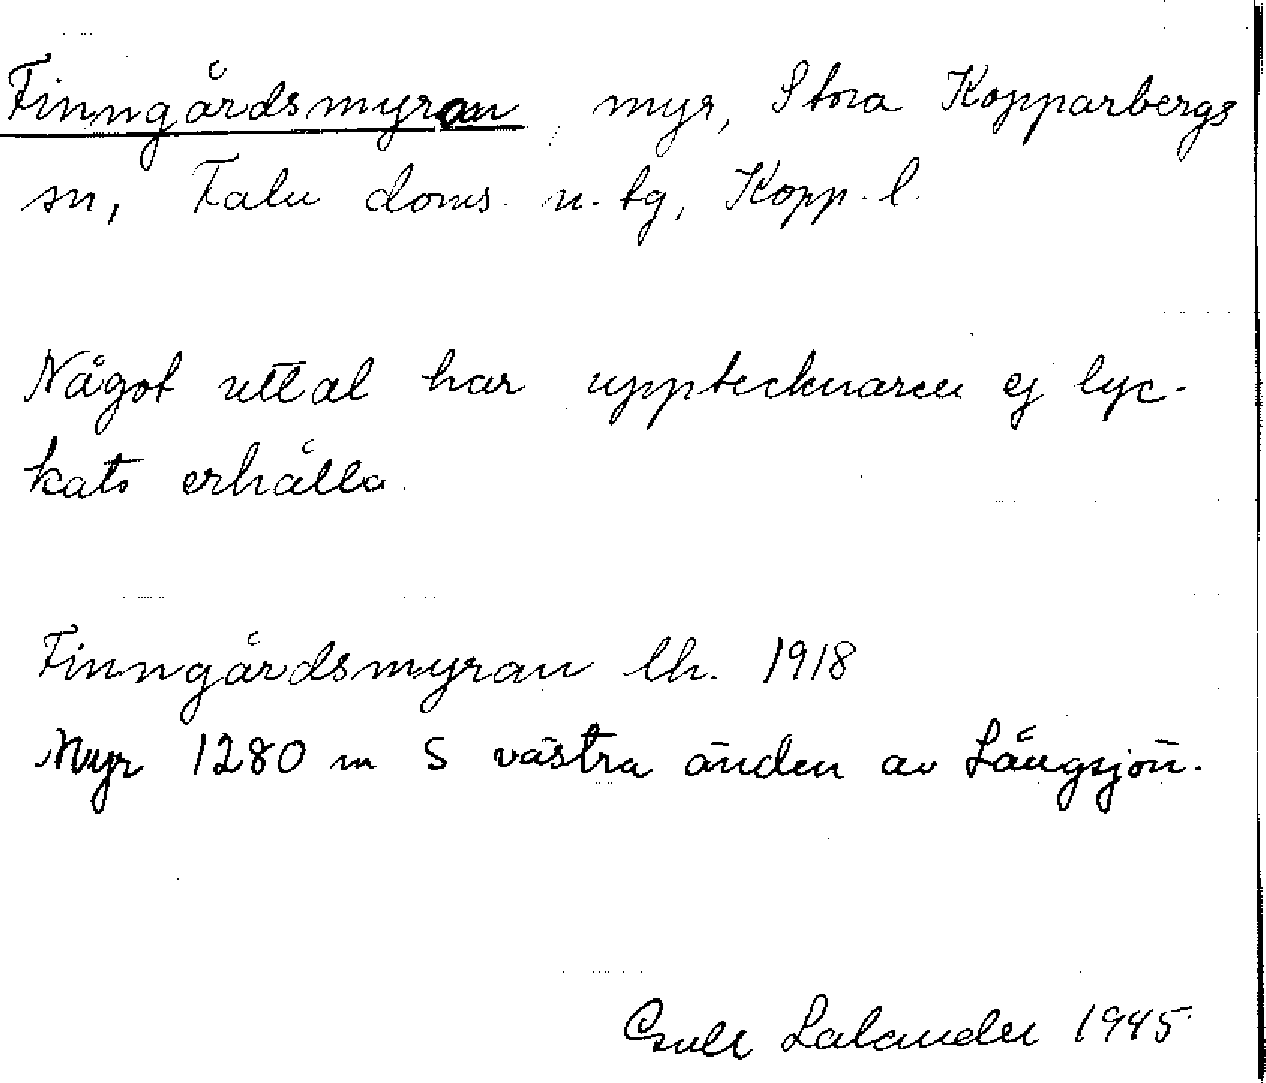 Finngårdsmyran, myr, Stora Kopparbergs
sn, Falu doms. n. tg, Kopp. l.
Något uttal har upptecknaren ej lyc-
kats erhålla.
Finngårdsmyran lh. 1918
Myr 1280 m S västra änden av Långsjön.
Lalander 1945